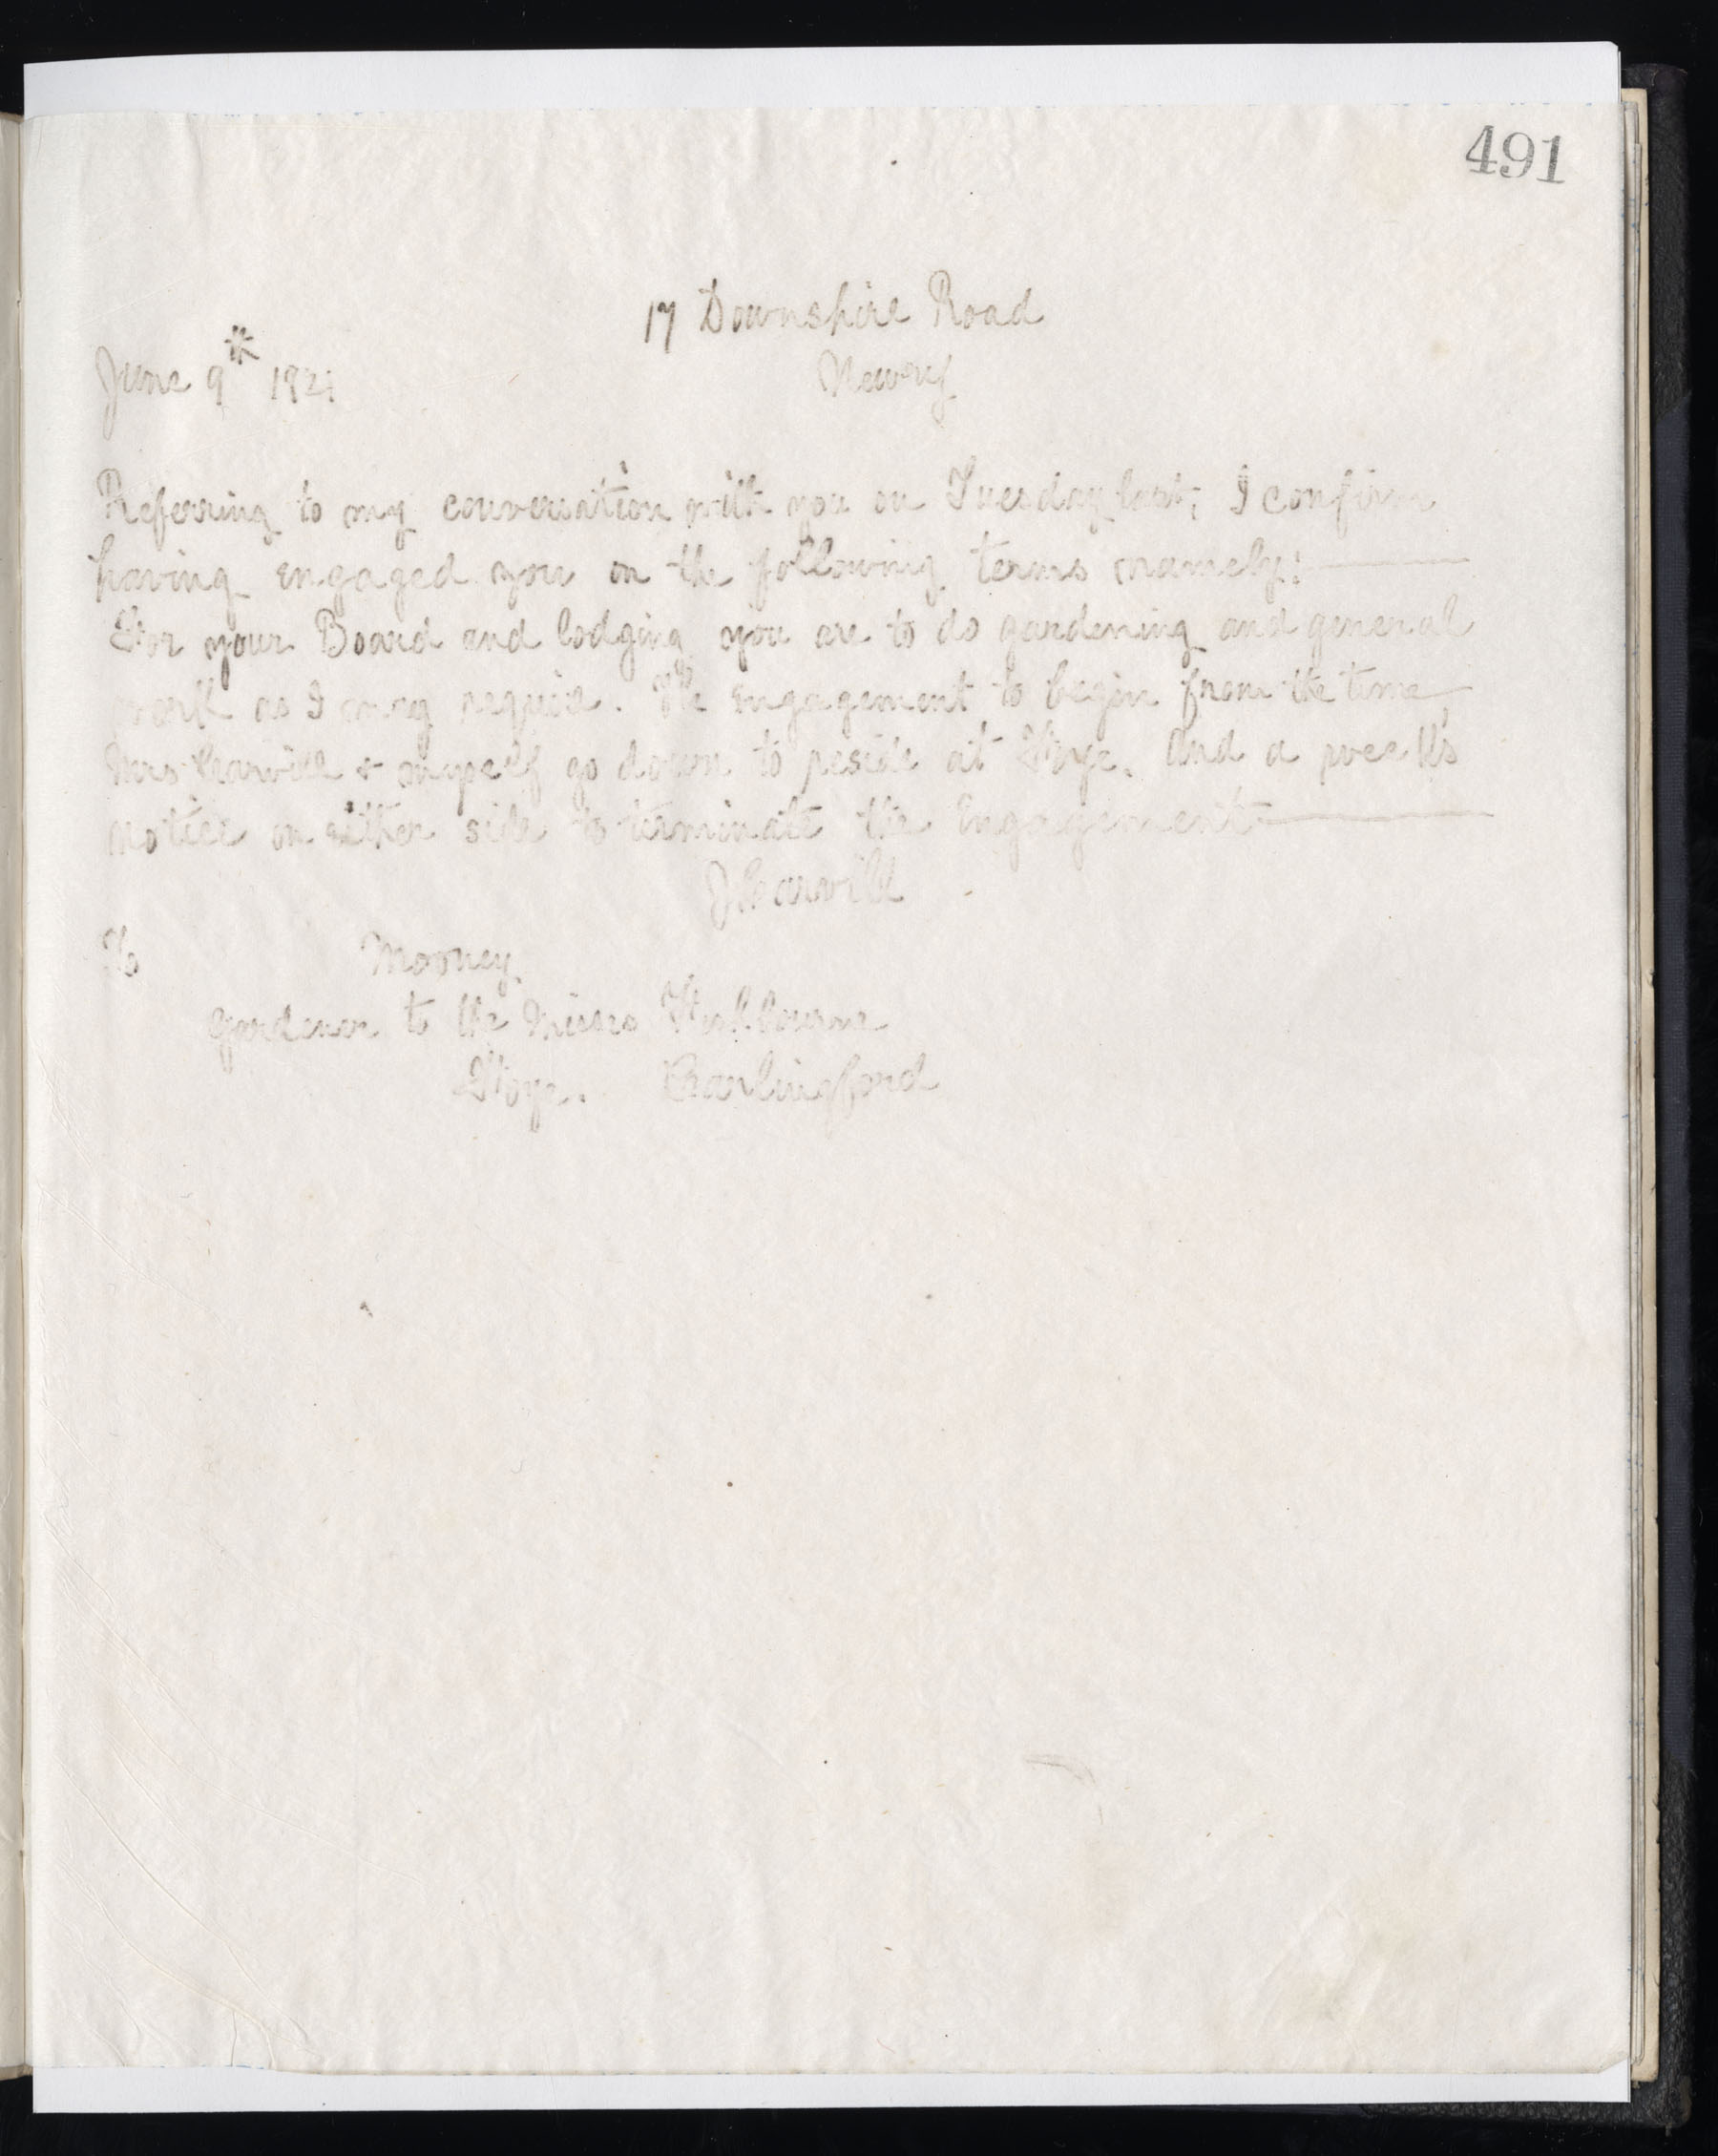 491
17 Downshire Road
Newry
June 9th 1921
Referring to my conversation with you on Tuesday last, I confirm
having engaged you on the following terms namely:
For your Board and lodging you are to do gardening and general
work as I may require. The Engagement to begin from the time
Mrs Carvill & myself go down to reside at Ffoye. And a week's
notice on either side to terminate the Engagement
J Carvill
To Mooney
Gardener to the Misses
Carlingford